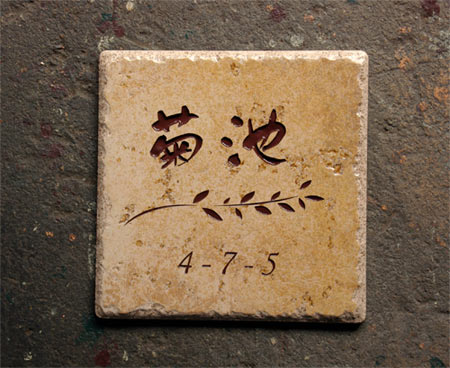 菊池
4-7-5